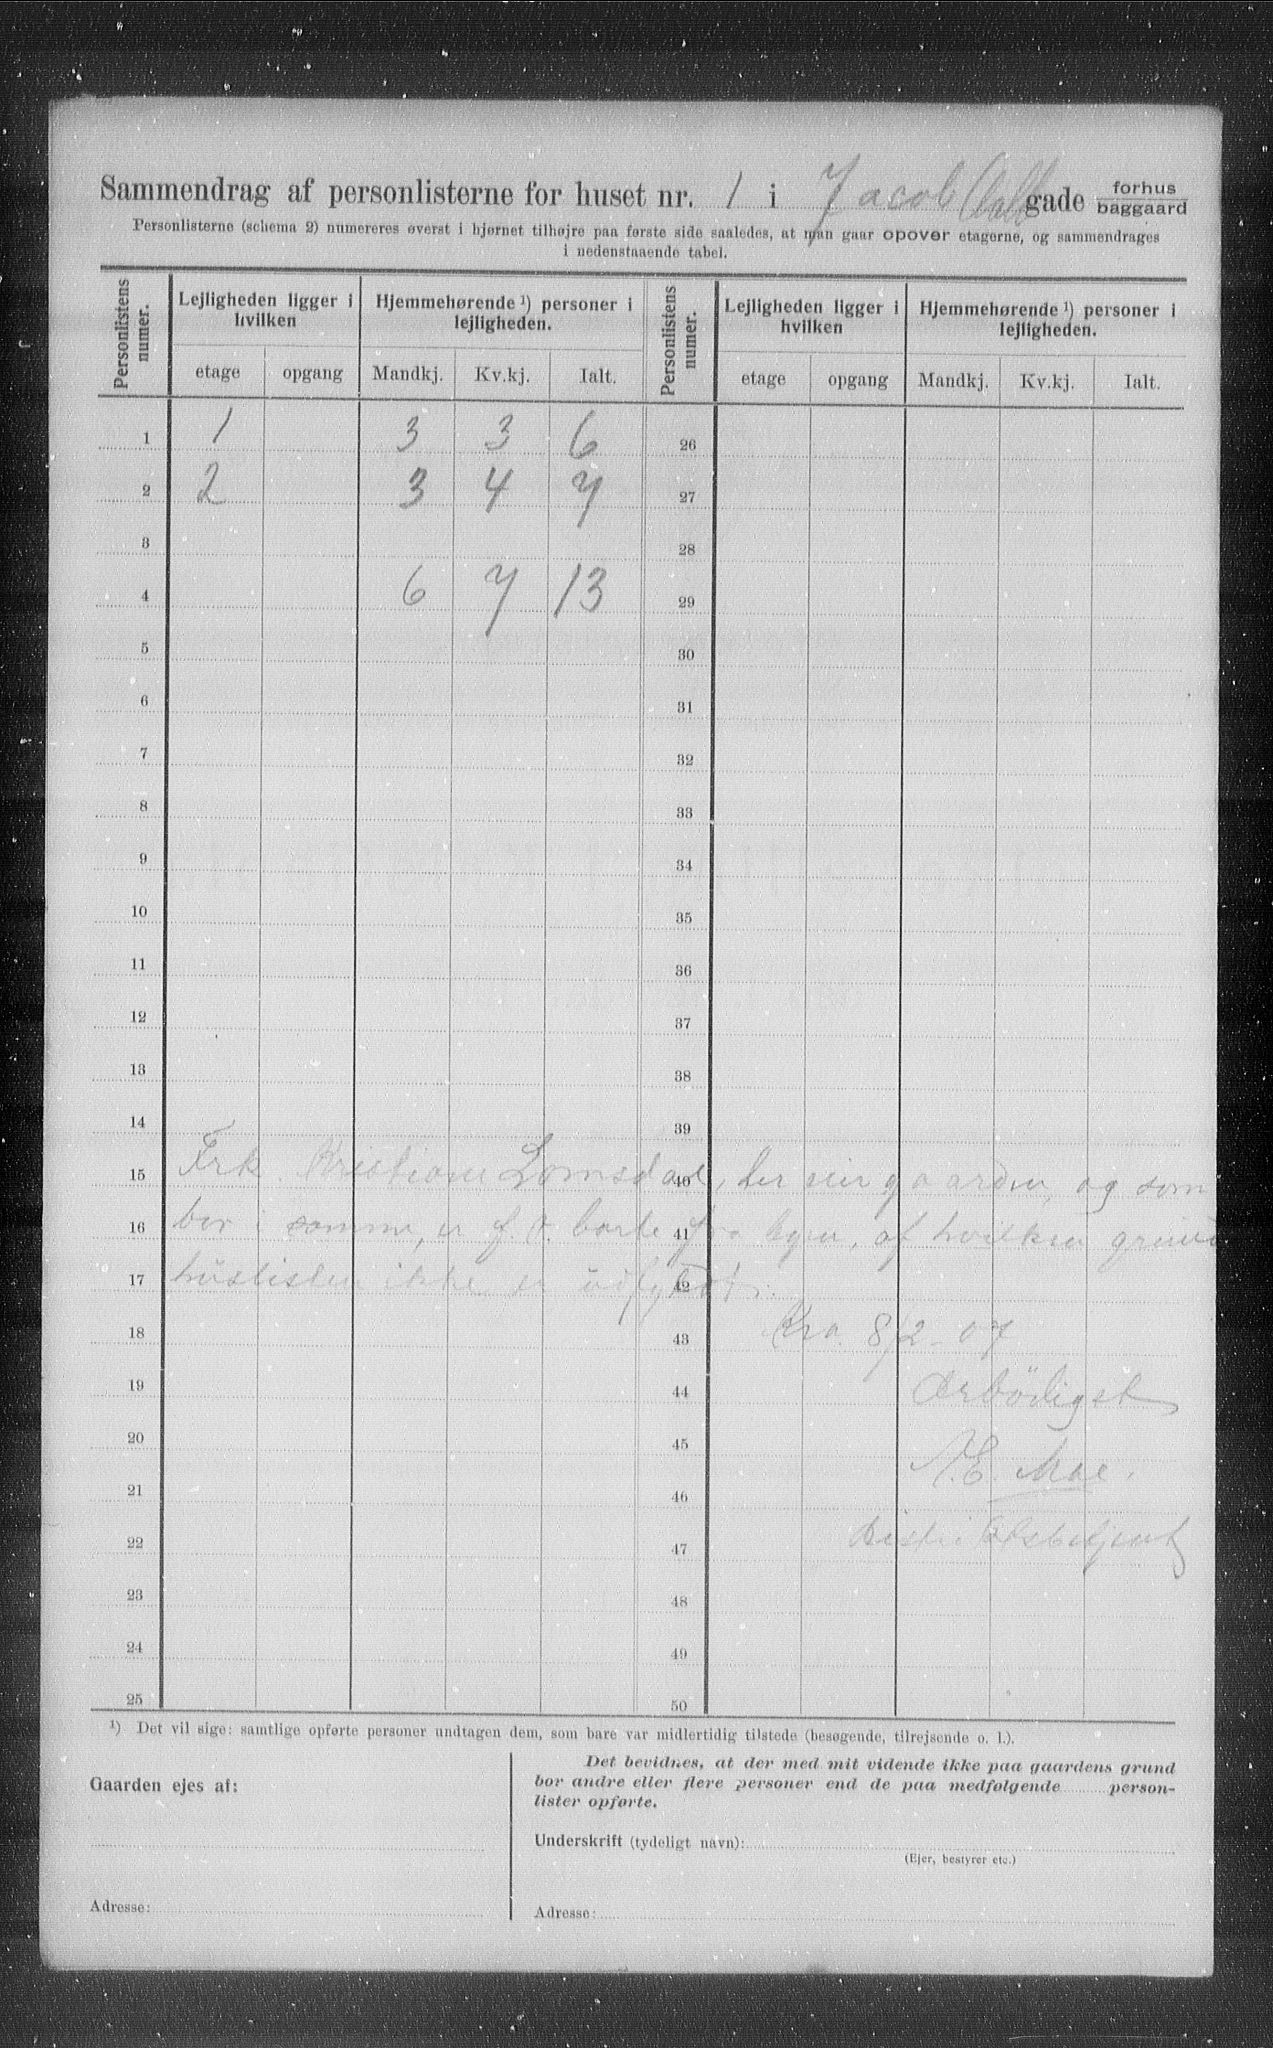 Sammendrag af personlisterne for huset nr. 1 i Jacob Aalls gade forhus baggaard
Personlisterne (schema 2) numereres øverst i hjørnet tilhøjre paa første side saaledes, at man gaar opover etagerne, og sammendrages
i nedenstaaende tabel.
Personlistens numer. Lejligheden ligger i hvilken Hjemmehørende ¹) personer i lejligheden. Personlistens numer. Lejligheden ligger i hvilken Hjemmehørende ¹) personer i lejligheden.
etage opgang Mandkj. Kv.kj. Ialt. etage opgang Mandkj. Kv.kj. Ialt.
1 1 3 3 6 26
2 2 3 4 7 27
3 28
4 6 7 13 29
5 30
6 31
7 32
8 33
9 34
10 35
11 36
12 37
13 38
14 39
Frk. Kristiane Lomsdal, der eier gaarden, og som
15 40
bor i samme, er f. t. borte fra byen, af hvilken grund
16 41
huslisten ikke er udfyldt.
17 42
Kra. 8/2-07
18 43
Ærbödigst
19 44
20 45
A.E. Moe.
21 46
22 47
23 48
24 49
25 50
¹) Det vil sige: samtlige opførte personer undtagen dem, som bare var midlertidig tilstede (besøgende, tilrejsende o. l.).
Gaarden ejes af:
Adresse:
Det bevidnes, at der med mit vidende ikke paa gaardens grund
bor andre eller flere personer end de paa medfølgende person-
lister opførte.
Underskrift (tydeligt navn):
(Ejer, bestyrer etc.)
Adresse: